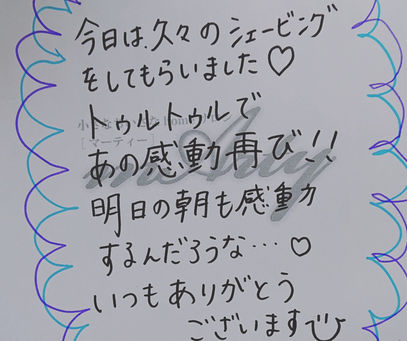 今日は、久々のシェービング
をしてもらいました♡
トゥルトゥルで
あの感動再び!!
[マーティー]
明日の朝も感動
するんだろうな…♡
いつもありがとう
ございます